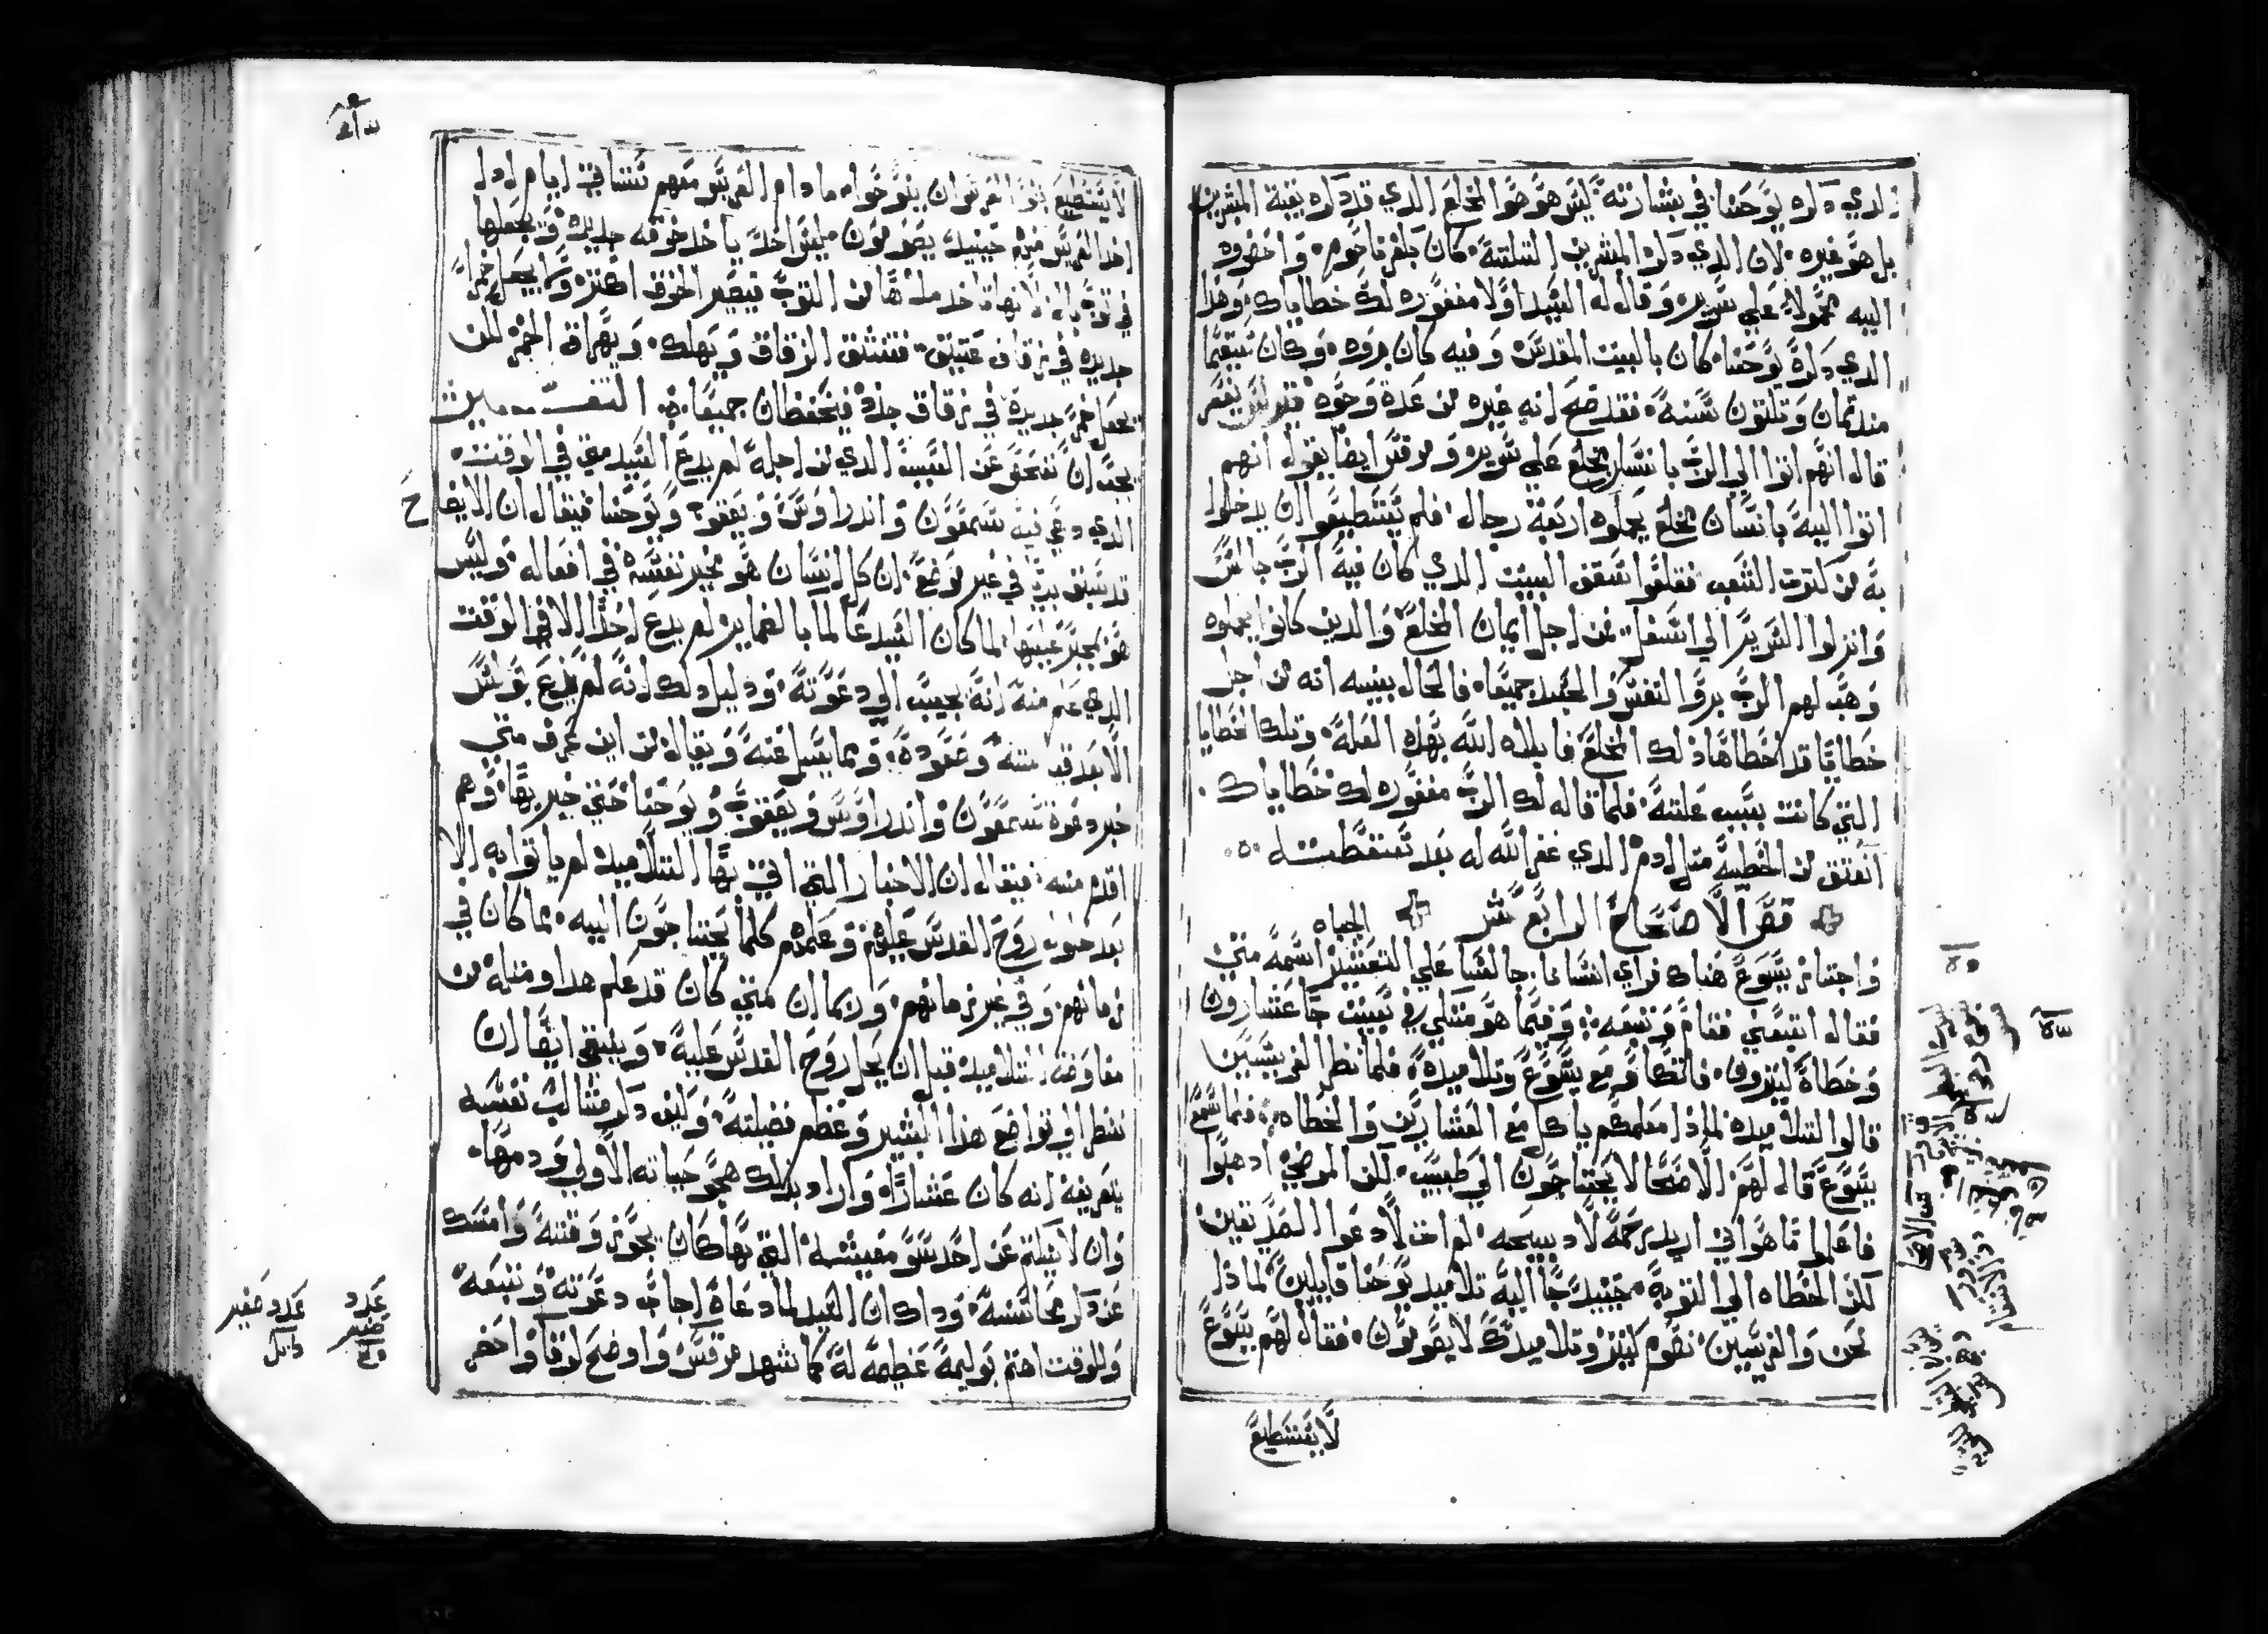 الدي دكره يوحنا في بشارته ليس هو هوا المخلع الدي قد دكره بقية المبشرين
بل هو غيره لان الدي دكره المبشرين التلتة كان بكفرناحوم واحضروه
اليه محمولا علي سرير وقال له السيد اولا مغفوره لك خطاياك وهدا
الدي دكره يوحنا كان بالبيت المقدس وفيه كان بروه وكان سقيما
مند تمان وتلتون سنه فقد صح انه غيره من عدة وجوه
قال انهم اتوا الي الرب بانسان مخلع علي سرير ومرقس ايضا يقول انهم
اتوا اليه بانسان مخلع يحملوه اربعة رجال فلم يستطيعوا ان يدخلوا
به من كترت الشعب فقلعوا سقف البيت الدي كان فيه الرب جالس
وانزلوا السرير الي اسفل من اجل ايمان المخلع والدين كانوا يحملوه
وهب لهم الرب بروا النفس والجسد جميعا فالحال بينيه انه من اجل
خطايا قد اخطاها ذلك المخلع فابلاه الله بهذه العلة وتلك الخطايا
التي كانت بسبب علته فلما قال له الرب مغفوره لك خطاياك
انعتق من الخطية متل ادم الدي غفر الله له بعد سقطته
قص الاصحاح الرابع عشر الجباه
واجتاز يسوع هناك فراي انسانا جالسا علي التعشير اسمه متي
فقال اتبعني فقام وتبعه وفيما هو متكي في بيت جا عشارون
وخطاة كتيرون فاتكاو مع يسوع وتلاميده فلما نظر الفريسيين
قالوا لتلاميده لماذا معلمكم ياكل مع العشارين والخطاه فلما سمع
يسوع قال لهم الاصحا لا يحتاجون الي طبيب لكن المرضي ادهبوا
فاعلموا ما هو اني اريد رحمة لا دبيحه لم ات لادعوا الصديقين
لكن الخطاه الي التوبة حينيد جا اليه تلاميد يوحنا قايلين لماذا
نحن والفريسيين نصوم كتير وتلاميدك لا يصومون فقال لهم يسوع
لا يستطيع
لا يستطيع بنوا العرس ان ينوحوا ما دام العريس معهم ستاتي ايام ادا
اخد العريس منهم حينيد يصومون ليس احد ياخد خرقه جديده ويجعلها
في توب بالي لانها تاخد ملاها من التوب فيصير الخرق اكتر ولا يجعل خمرا
جديده في زقاق عتيق فتنشق الزقاق ويهلك ويهراق الخمر لكن
يجعل خمر جديدة في زقاق جدد فيحفظان جميعا التفسير
يجب ان نفحص عن السبب الدي من اجله لم يدع السيد متي في الوقت
الدي دعي فيه سمعون واندراوس ويعقوب ويوحنا فيقال ان الايضاح
قد سبق بين في غير موضع ان كل انسان هو مخير نفسه في افعاله وليس
هو مجبر عليها لما كان السيد عالما بالضماير لم يدع احدا الا في الوقت
الدي علم منه انه يجيب الي دعوته ودليل دلك انه لم يدع بولس
الا بعد قيامته وصعوده ومما يسل عنه ويقال من اين عرف متي
خبر دعوة سمعون واندراوس ويعقوب ويوحنا حتي خبر بها وهم
اقدم منه فيقال ان الاخبار التي اتي بها التلاميد لم ياتوا به الا
بعد حلول روح القدس عليهم وعلمهم كلما يحتاجون اليه مما كان في
زمانهم وفي غير زمانهم وربما ان متي كان قد علم هدا ومتله من
مفاوضة التلاميد قبل ان يحل روح القدس عليه وينبغي ايضا ان
ننظر الي تواضع هدا البشير وعظم فضيلته وكيف دكر متالب نفسه
بتعريفه انه كان عشارا واراد بدلك هجو حياته الاولي ودمها
وان لا يكتم عن احد سو معيشته التي بها كان يجوز وقته وامسك
عن دكر محاسنه وداك ان السيد لما دعاه اجاب دعوته وتبعه
وللوقت اهتم بوليمة عظيمة له كما شهد مرقس واوضح لوقا واخفي
عدد صغير
عدد صغير